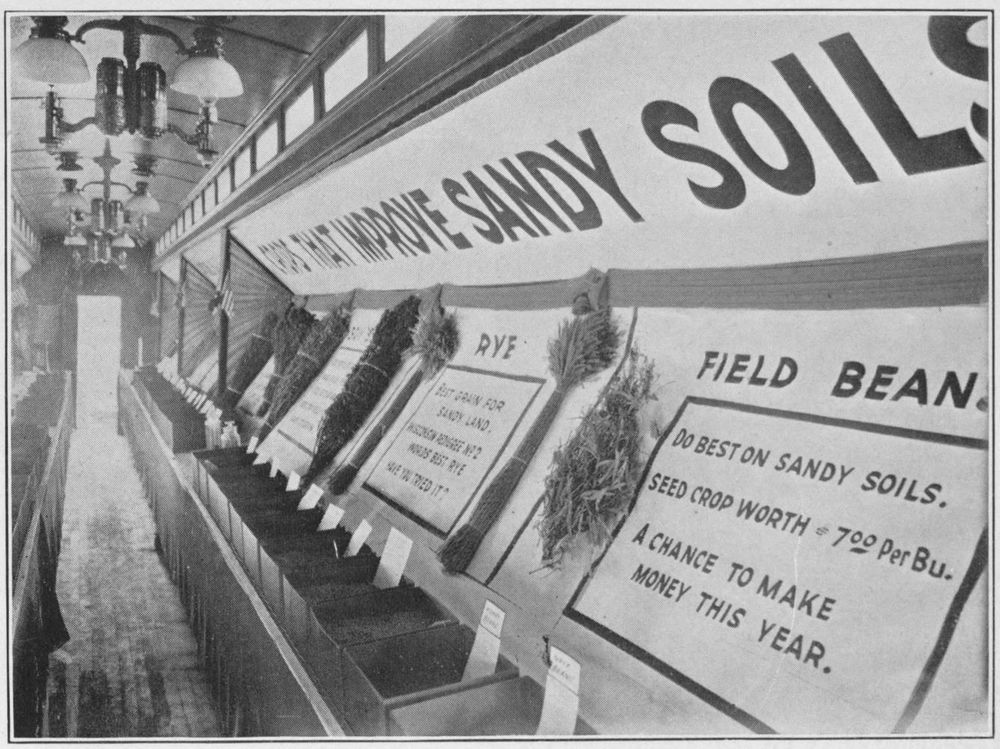 THAT IMPROVE SANDY SOILS
RYE
BEST GRAIN FOR
SANDY LAND.
WISCONSIN PEDIGREE Nº 2
WORLDS BEST RYE
HAVE YOU TRIED IT?
FIELD BEANS
DO BEST ON SANDY SOILS.
SEED CROP WORTH = 7.00 Per Bu.
A CHANCE TO MAKE
MONEY THIS YEAR.